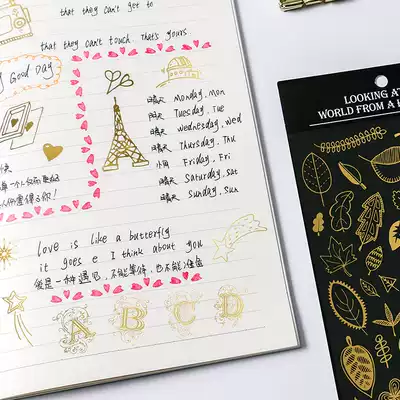 that they can't get to
that they can't touch. That's yours
Good Day
晴天 Monday, Mon
阳天 Tuesday, Tue
晴天 wednesday, Wed
晴天 Thursday, Thu
小雨 Friday, Fri
晴天 Saturday, sat
晴天 Sunday, Sun
love is like a butterfly
it goes e I think about you
A B C D
LOOKING AT
WORLD FROM A